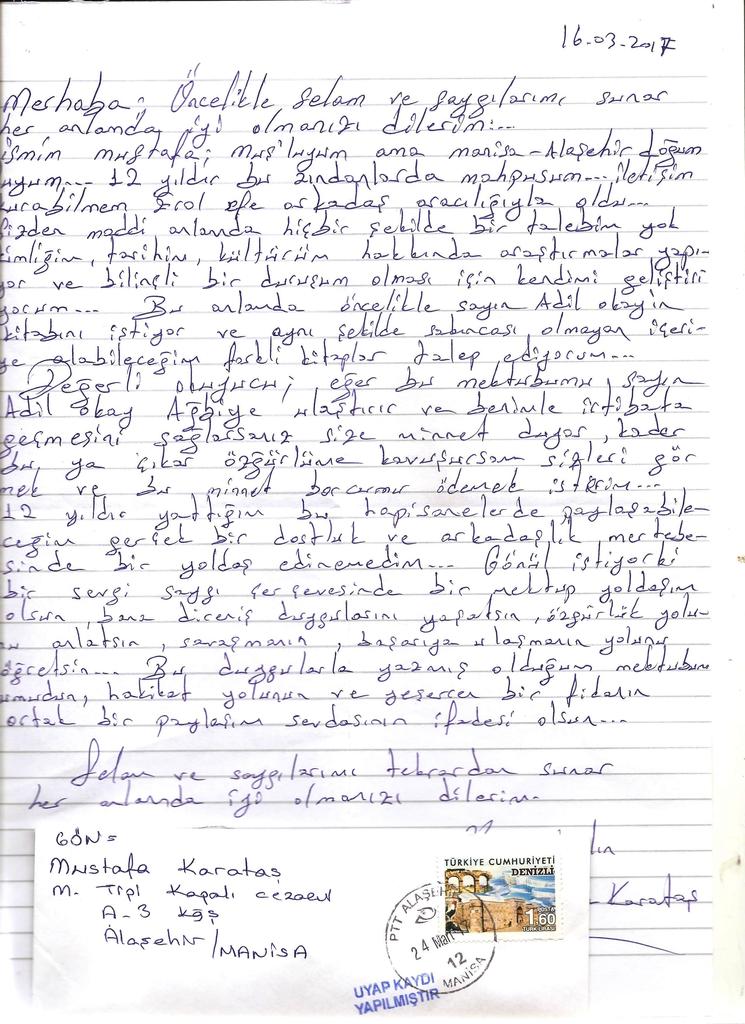 16-03-2017
Merhaba; Öncelikle selam ve saygılarımı sunar
her anlamda iyi olmanızı dilerim...
ismim mustafa; muş'luyum ama manisa-Alaşehir doğum
uyum... 12 yıldır bu zindanlarda mahpusum... iletişim
kurabilmem Erol efe arkadaş aracılığıyla oldu...
Sizden maddi anlamda hiçbir şekilde bir talebim yok
imliğim, tarihim, kültürüm hakkında araştırmalar yapı-
yor ve bilinçli bir duruşum olması için kendimi geliştiri
yorum... Bu anlamda öncelikle sayın Adil okayın
kitabını istiyor ve aynı şekilde sakıncası olmayan içeri-
ye alabileceğim farklı kitaplar talep ediyorum...
Değerli okuyucu; eğer bu mektubumu sayın
Adil okay Ağbiye ulaştırır ve benimle irtibata
geçmesini sağlarsanız size minnet duyar, kader
bu ya çıkar özgürlüme kavuşursam sizleri gör
mek ve bu minnet borcumu ödemek isterim...
12 yıldır yattığım bu hapisanelerde paylaşabile-
ceğim gerçek bir dostluk ve arkadaşlık mertebe-
sinde bir yoldaş edinemedim... Gönül istiyorki
bir sevgi saygı çerçevesinde bir mektup yoldaşım
olsun, bana direniş duygularını yaşatsın, özgürlük yolu-
nu anlatsın, savaşmanın, başarıya ulaşmanın yolunu
öğretsin... Bu duygularla yazmış olduğum mektubum
umudun, hakikat yolunun ve yeşeren bir fidanın
ortak bir paylaşım sevdasının ifadesi olsun...
Selam ve saygılarımı tekrardan sunar
her anlamda iyi olmanızı dilerim.
Karataş
GÖN=
Mustafa Karataş
M. Tipi Kapalı cezaevi
A-3 kğş
Alaşehir/MANİSA
TÜRKİYE CUMHURİYETİ
DENİZLİ
POSTA
1.60
TÜRK LİRASI
PTT ALAŞEHİR
24 Mart
12
MANİSA
UYAP KAYDI
YAPILMIŞTIR